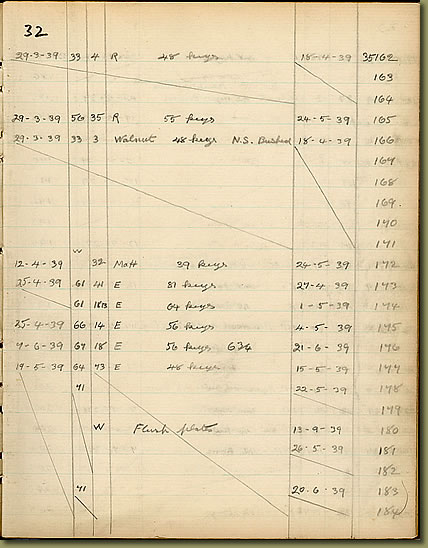 32
29-3-39 33 4 R 48 keys 18-4-39 35162
163
164
29-3-39 56 35 R 55 keys 24-5-39 165
29-3-39 33 3 Walnut 48 keys N.S. Bushed 18-4-39 166
167
168
169.
170
171
W
12-4-39 32 Matt 39 keys 24-5-39 172
25-4-39 61 41 E 81 keys 27-4-39 173
61 E 64 keys 1-5-39 174
25-4-39 66 14 E 56 keys 4-5-39 175
7-6-39 67 18 E 56 keys 634 21-6-39 176
19-5-39 64 73 E 48 keys 15-5-39 177
71 22-5-39 178
179
W Flush plate 13-9-39 180
26-5-39 181
182
71 20-6-39 183
184